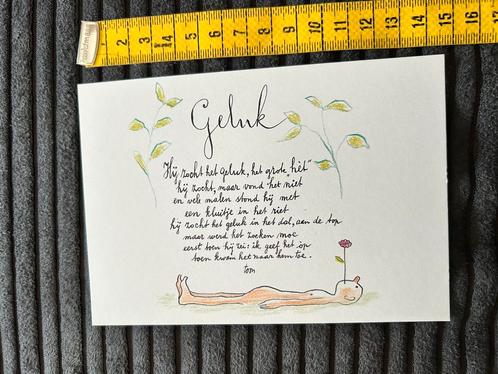 2 3 4 5 6 7 8 9 10 11 12 13 14 15 16 17 18 19
Geluk
Hij zocht het geluk, het grote "hèt"
hij zocht, maar vond het niet
en vele malen stond hij met
een kluitje in het riet
hij zocht het geluk in het dal, aan de top
maar werd het zoeken moe
eerst toen hij zei: ik geef het op
toen kwam het naar hem toe.
tom